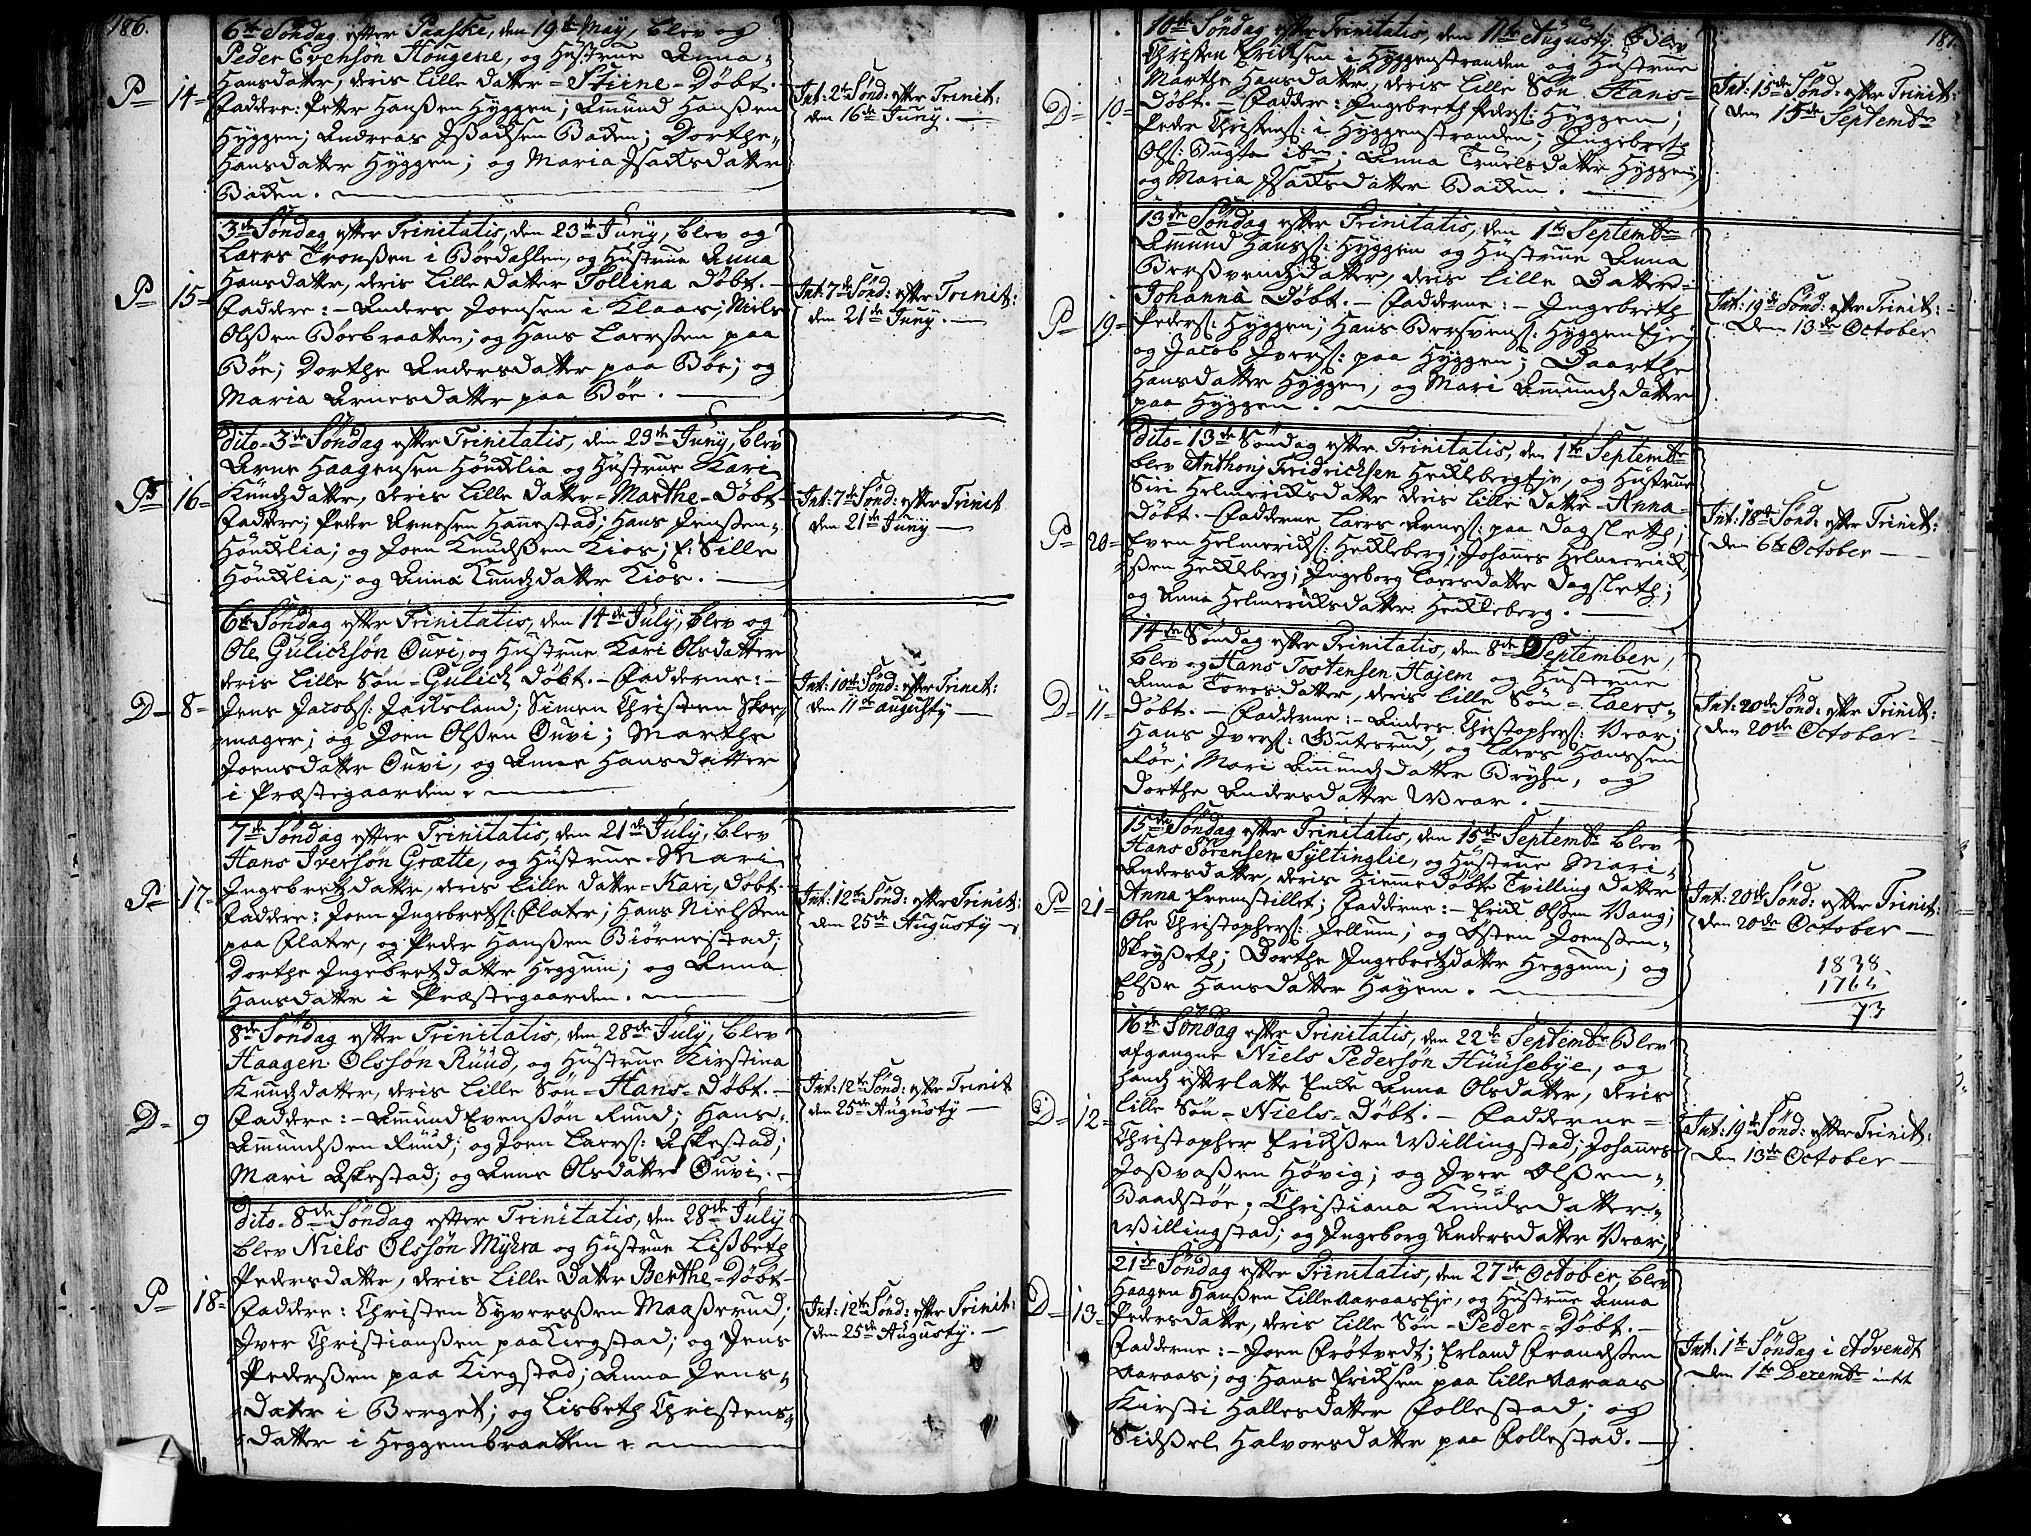 186.
6te Søndag efter Paaske, den 19de Maÿ, blev og
Peder Evensøn Hougene, og Hustrue Anna
Hansdatter, deris lille datter = Stiine - Døbt.
P 14 Faddere: Petter Hanßen Hÿggen; Amund Hanßen
Hÿggen; Andreas Isachsen Baden; Dorthe
Hansdatter Hÿggen; og Maria Isachsdatter
Baden.
Int: 2de Sönd: efter Trinit:
den 16de Junÿ.
3de Søndag efter Trinitatis, den 23de Junÿ, blev og
Laers Tronßen i Bördahlen, og Hustrue Anna
Hansdatter, deris lille datter Tollina Døbt.
P 15 Faddere: - Anders Joensen i Klaas; Niels
Olßen Börbraaten; og Hans Laersen paa
Böe; Dorthe Andersdatter paa Böe; og
Maria Arnesdatter paa Böe.
Int: 7de Sönd: efter Trinit:
den 21de Junÿ.
Dito - 3de Søndag efter Trinitatis, den 23de Junÿ, blev
Arne Haagensen Hönelia og Hustrue Kari
Knudsdatter, deris lille datter = Marthe - Døbt
P 16 Faddere; Peder Arnesen Hannestad; Hans Jensen
Hönelia; og Joen Knudsßen Kios; S: Sille
Hönelia; og Anna Knudsdatter Kios.
Int: 7de Sönd: efter Trinit
den 21de Junÿ
6te Søndag efter Trinitatis, den 14de Julÿ, blev og
Ole Gulichsøn Ouvi, og Hustrue Kari Olsdatter
deris lille Søn - Gulich Døbt. - Fadderne: -
D 8 Jens Jacobs: Jarsland; Simen Christen Skoe
mager; og Joen Olßen Ouvi; Marthe
Joensdatter Ouvi, og Anne Hansdatter
i Præstegaarden.
Int: 10de Sönd: efter Trinit:
den 11te Augustÿ
7de Søndag efter Trinitatis, den 21de Julÿ, blev
Hans Iversøn Grætte, og Hustrue - Mari
Ingebretsdatter, deris lille datter = Kari, Døbt.
P 17 Faddere: Joen Ingebrets: Flater; Hans Nielsßen
paa Flater, og Peder Hanßen Biörnestad;
Dorthe Ingebretsdatter Heggum; og Anna
Hansdatter i Præstegaarden.
Int: 12te Sönd: efter Trinit:
den 25de Augustÿ
8de Søndag efter Trinitatis, den 28de Julÿ, blev
Haagen Olssøn Ruud, og Hustrue Kirstina
Knudsdatter, deris lille Søn = Hans - Døbt.
D 9 Faddere: - Amund Evensøn Ruud; Hans
Amundsßen Ruud; og Joen Laers: Askestad;
Mari Askestad; og Anne Olsdatter Ouvi.
Int: 12te Sönd: efter Trinit
den 25de Augustÿ
Dito - 8de Søndag efter Trinitatis, den 28de Julÿ
blev Niels Olssøn Mÿhra og Hustrue Lisbeth
Pedersdatter, deris lille datter Berthe - Døbt
P 18 Faddere: Christen Sÿversßen Maaserud;
Iver Christianßen paa Kiegstad; og Jens
Pedersßen paa Kiegstad; Anna Jens
Datter i Berget; og Lisbeth Christens
datter i Heggembraatten
Int: 12te Sönd: efter Trinit:
den 25de Augustÿ.
187
10de Søndag efter Trinitatis, den 11te Augustÿ Blev
Christen Erichsen i Hÿggenstranden og Hustrue
Marthe Hansdatter, deris lille Søn Hans
D 10 Døbt. - Faddere: Ingebreth Peders: Hÿggen;
Peder Christens: i Hÿggenstranden; Ingebreth
Anna Truelsdatter Hÿggen
og Maria Isachsdatter Baden.
Int: 15de Sönd: efter Trinit:
den 15de Septembr
13de Søndag efter Trinitatis, den 1te Septembr
Amund Hans: Hÿggen og Hustrue Anna
Bersvendsdatter, deris lille Datter
Johanna Døbt. - Fadderne: - Ingebreth
P 19 Peders: Hÿggen; Hans Bersvens: HÿggenEje;
og Jacob Ivers: paa Hÿggen; Daarthe
Hansdatter Hÿggen, og Mari Amundsdatter
paa Hÿggen.
Int: 19de Sönd: efter Trinit:
Den 13de October
Dito - 13de Søndag efter Trinitatis, den 1te Septembr
blev Anthonj Fridrichsen HeklebergEje, og Hustrue
Siri Helmerichsdatter deris lille datter - Anna
Døbt. - Fadderne Laers Arnes: paa Dagsleth;
P 20 Even Helmerichs: Hekleberg; Johannes Helmerich
ßen Hekleberg; Ingeborg Laersdatter Dagsleth;
og Anna Helmerichsdatter Hekleberg.
Int: 18de Sönd: efter Trinit:
den 6te October
14de Søndag efter Trinitatis, den 8de September,
blev og Hans Tostensen Hajem og Hustrue
Anna Toresdatter, deris lille Søn - Laers
D 11 Døbt. - Fadderne: - Anders Christophers: Vear;
Hans Ivers: Gutesrud, og Laers Hanssen
Föe; Mari Amundsdatter Brÿhn, og
Dorthe Andersdatter Wear.
Int: 20de Sönd: efter Trinit:
den 20de October
15de Søndag efter Trinitatis, den 15de Septembr blev
Hans Sörensen Sÿltinglie, og Hustrue Mari
Andersdatter, deris hiemmedøbte Tvilling datter
P 21 Anna fremstillet; Fadderne: - Erich Olßen Vang;
Ole Christophers: Jellum; og Osten Joensßen
Skrÿseth; Dorthe Ingebretsdatter Heggum; og
Elße Hansdatter Hajem.
Int: 20de Sönd: efter Trinit:
den 20de October
1838.
1765
73
16de Søndag efter Trinitatis, den 22de Septembr Blev
afgangne Niels Pedersøn Huusebÿe, og
hands efterlatte Enke Anna Olsdatter, deris
lille Søn - Niels - Døbt. - Fadderne
D 12 Christopher Erichßen Willingstad; Johannes
Joßvaßen Hövig; og Iver Olßen
Baadstöe; Christiana Knudsdatter
Willingstad; og Ingeborg Andersdatter Vear;
Int: 19de Sönd: efter Trinit:
den 13de October
21de Søndag efter Trinitatis, den 27de October, blev
Haagen Hanßen LilleAaraasEje, og Hustrue Anna
D 13 Pedersdatter, deris lille Søn - Peder - Døbt. -
Fadderne: - Joen Frötvedt; Erland Frandsen
Aaraas; og Hans Erichsen paa lille Aaraas
Kirsti Hallesdatter Follestad; og
Sidsel Halvorsdatter paa Follestad.
Int: 1te Söndag i Advendt
den 1te Decembr intr